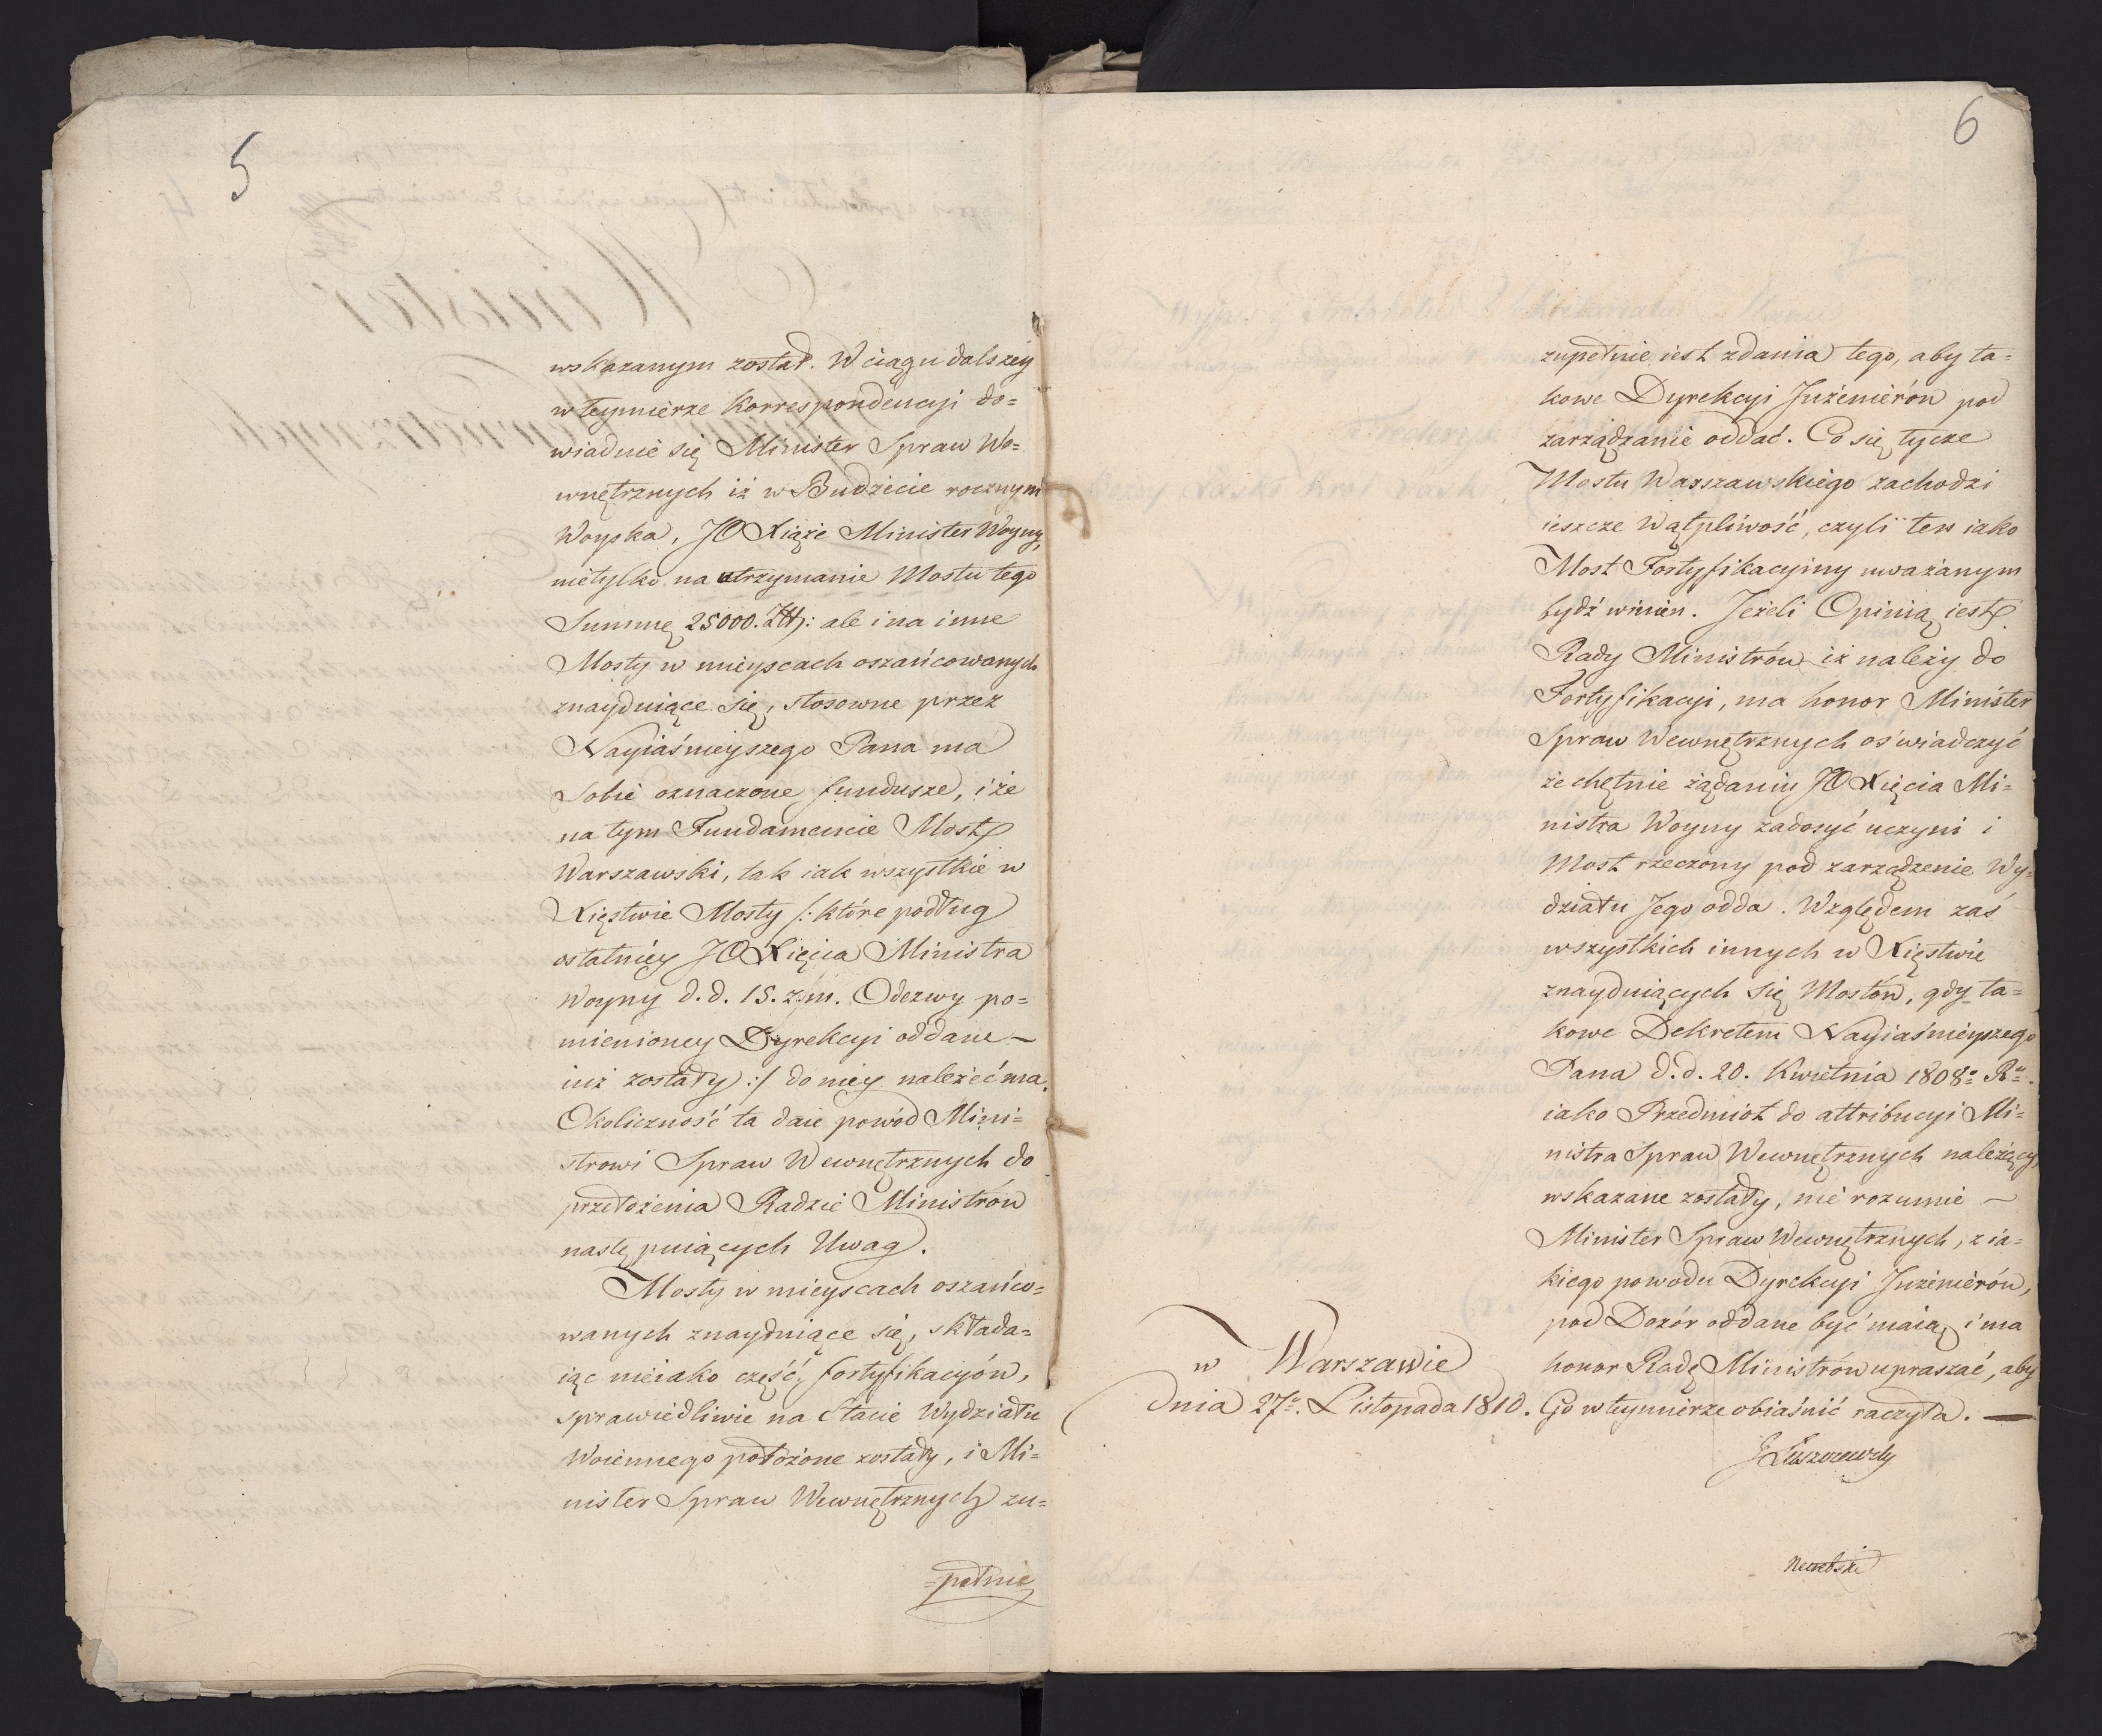 5
wskazanym został. W ciągu dalszéy
w teymierze Korrespondencyi do=
wiaduie się Minister Spraw We=
wnętrznych iż w Budżecie rocznym
Woyska, JO Xiąże Minister Woyny,
nietylko na utrzymanie Mostu tego
Summę 25000. Złł: ale i na inne
Mosty w mieyscach oszańcowanych
znayduiące się, stosowne przez
Nayiaśnieyszego Pana ma
Sobie oznaczone fundusze, i że
na tym Fundamencie Most
Warszawski, tak iak wszystkie w
Xięstwie Mosty /: które podług
ostatniéy JO Xięcia Ministra
Woyny d. d. 15. z. m. Odezwy po=
mienioney Dyrekcyi oddane —
iuż zostały :/ do niey należeć ma.
Okoliczność ta daie powód Mini=
strowi Spraw Wewnętrznych do
przełożenia Radzie Ministrów
następuiących Uwag.
Mosty w mieyscach oszańco=
wanych znayduiące się, składa=
iąc nieiako część fortyfikacyón,
sprawiedliwie na Etacie Wydziału
Woiennego położone zostały, i Mi=
nister Spraw Wewnętrznych zu=
=pełnie
6
zupełnie iest zdania tego, aby ta=
kowe Dyrekcyi Inżenierón pod
zarządzanie oddać. Co się tycze
Mostu Warszawskiego zachodzi
ieszcze Wątpliwość, czyli ten iako
Most Fortyfikacyiny uważanym
bydź winien. Jeżeli Opinią iest
Rady Ministrów iż należy do
Fortyfikacyi, ma honor Minister
Spraw Wewnętrznych oświadczyć
że chętnie żądaniu JO Xięcia Mi=
nistra Woyny zadosyć uczyni i
Most rzeczony pod zarządzenie Wy=
działu Jego odda. Względem zaś
wszystkich innych w Xięstwie
znayduiących się Mostów, gdy ta=
kowe Dekretem Nayiaśnieyszego
Pana d. d. 20. Kwietnia 1808o Ru.
iako Przedmiot do attribucyi Mi=
nistra Spraw Wewnętrznych należący,
wskazane zostały, nie rozumie —
Minister Spraw Wewnętrznych, z ia=
kiego powodu Dyrekcyi Inżenierón,
pod Dozór oddane być maią i ma
honor Radę Ministrów upraszać, aby
Go w teymierze obiaśnić raczyła. —
w Warszawie
dnia 27o. Listopada 1810.
J Łuszczewski